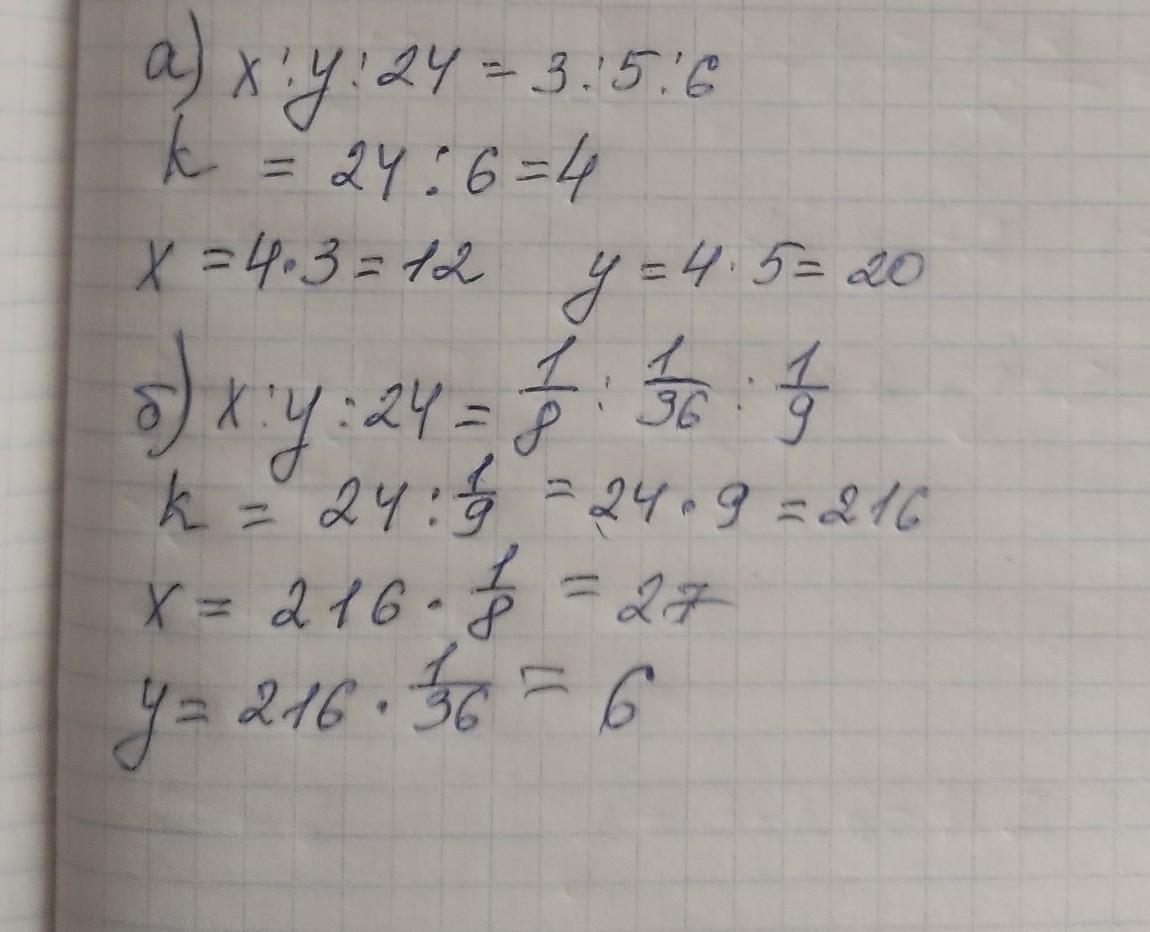 а) x : y : 24 = 3 : 5 : 6
k = 24 : 6 = 4
x = 4 · 3 = 12 y = 4 · 5 = 20
б) x : y : 24 = 1/8 : 1/36 : 1/9
k = 24 : 1/9 = 24 · 9 = 216
x = 216 · 1/8 = 27
y = 216 · 1/36 = 6